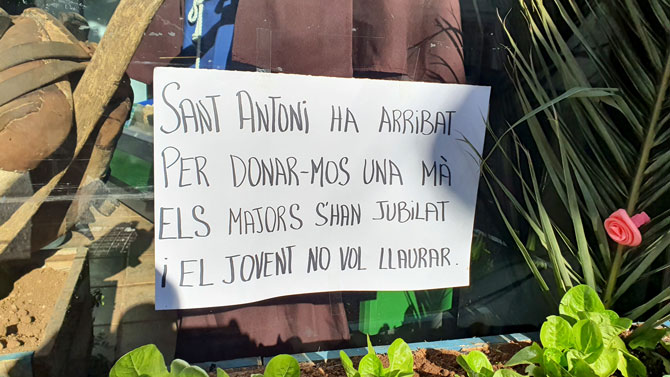 SANT ANTONI HA ARRIBAT
PER DONAR-MOS UNA MÀ
ELS MAJORS S'HAN JUBILAT
I EL JOVENT NO VOL LLAURAR.